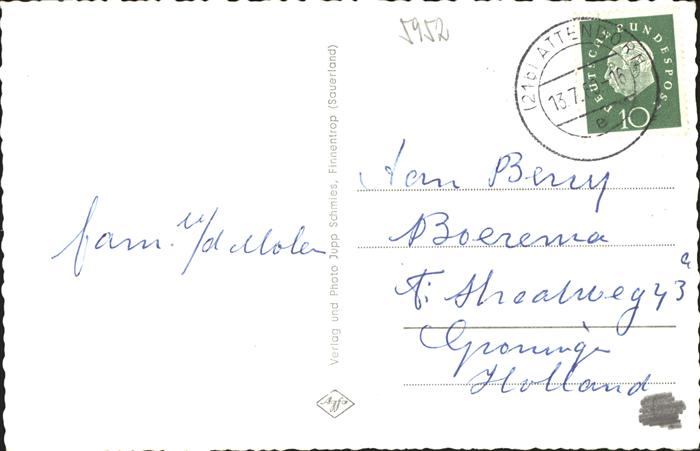 5952
(21b) ATTENDORN
13.7. -16
e
DEUTSCHE BUNDESPOST
10
Verlag und Photo Jupp Schmies, Finnentrop (Sauerland)
fam. v/d Molen
Aan Berry
Boerema
43a
Groningen
Holland